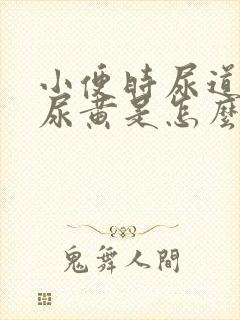 小便時尿道
尿黃是怎麼
鬼舞人間